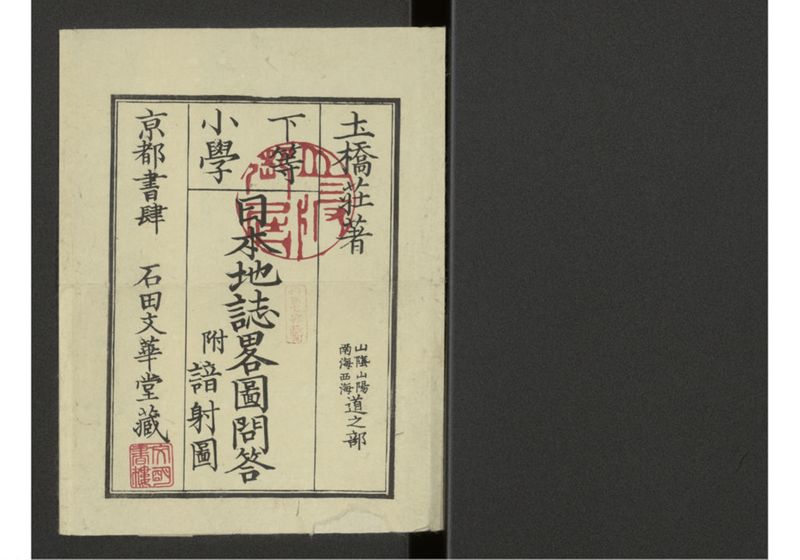 土橋荘著
山蔭山陽
南海西海
道之部
下等
小學
日本地誌畧圖問答
附
諳射圖
京都書肆 石田文華堂藏